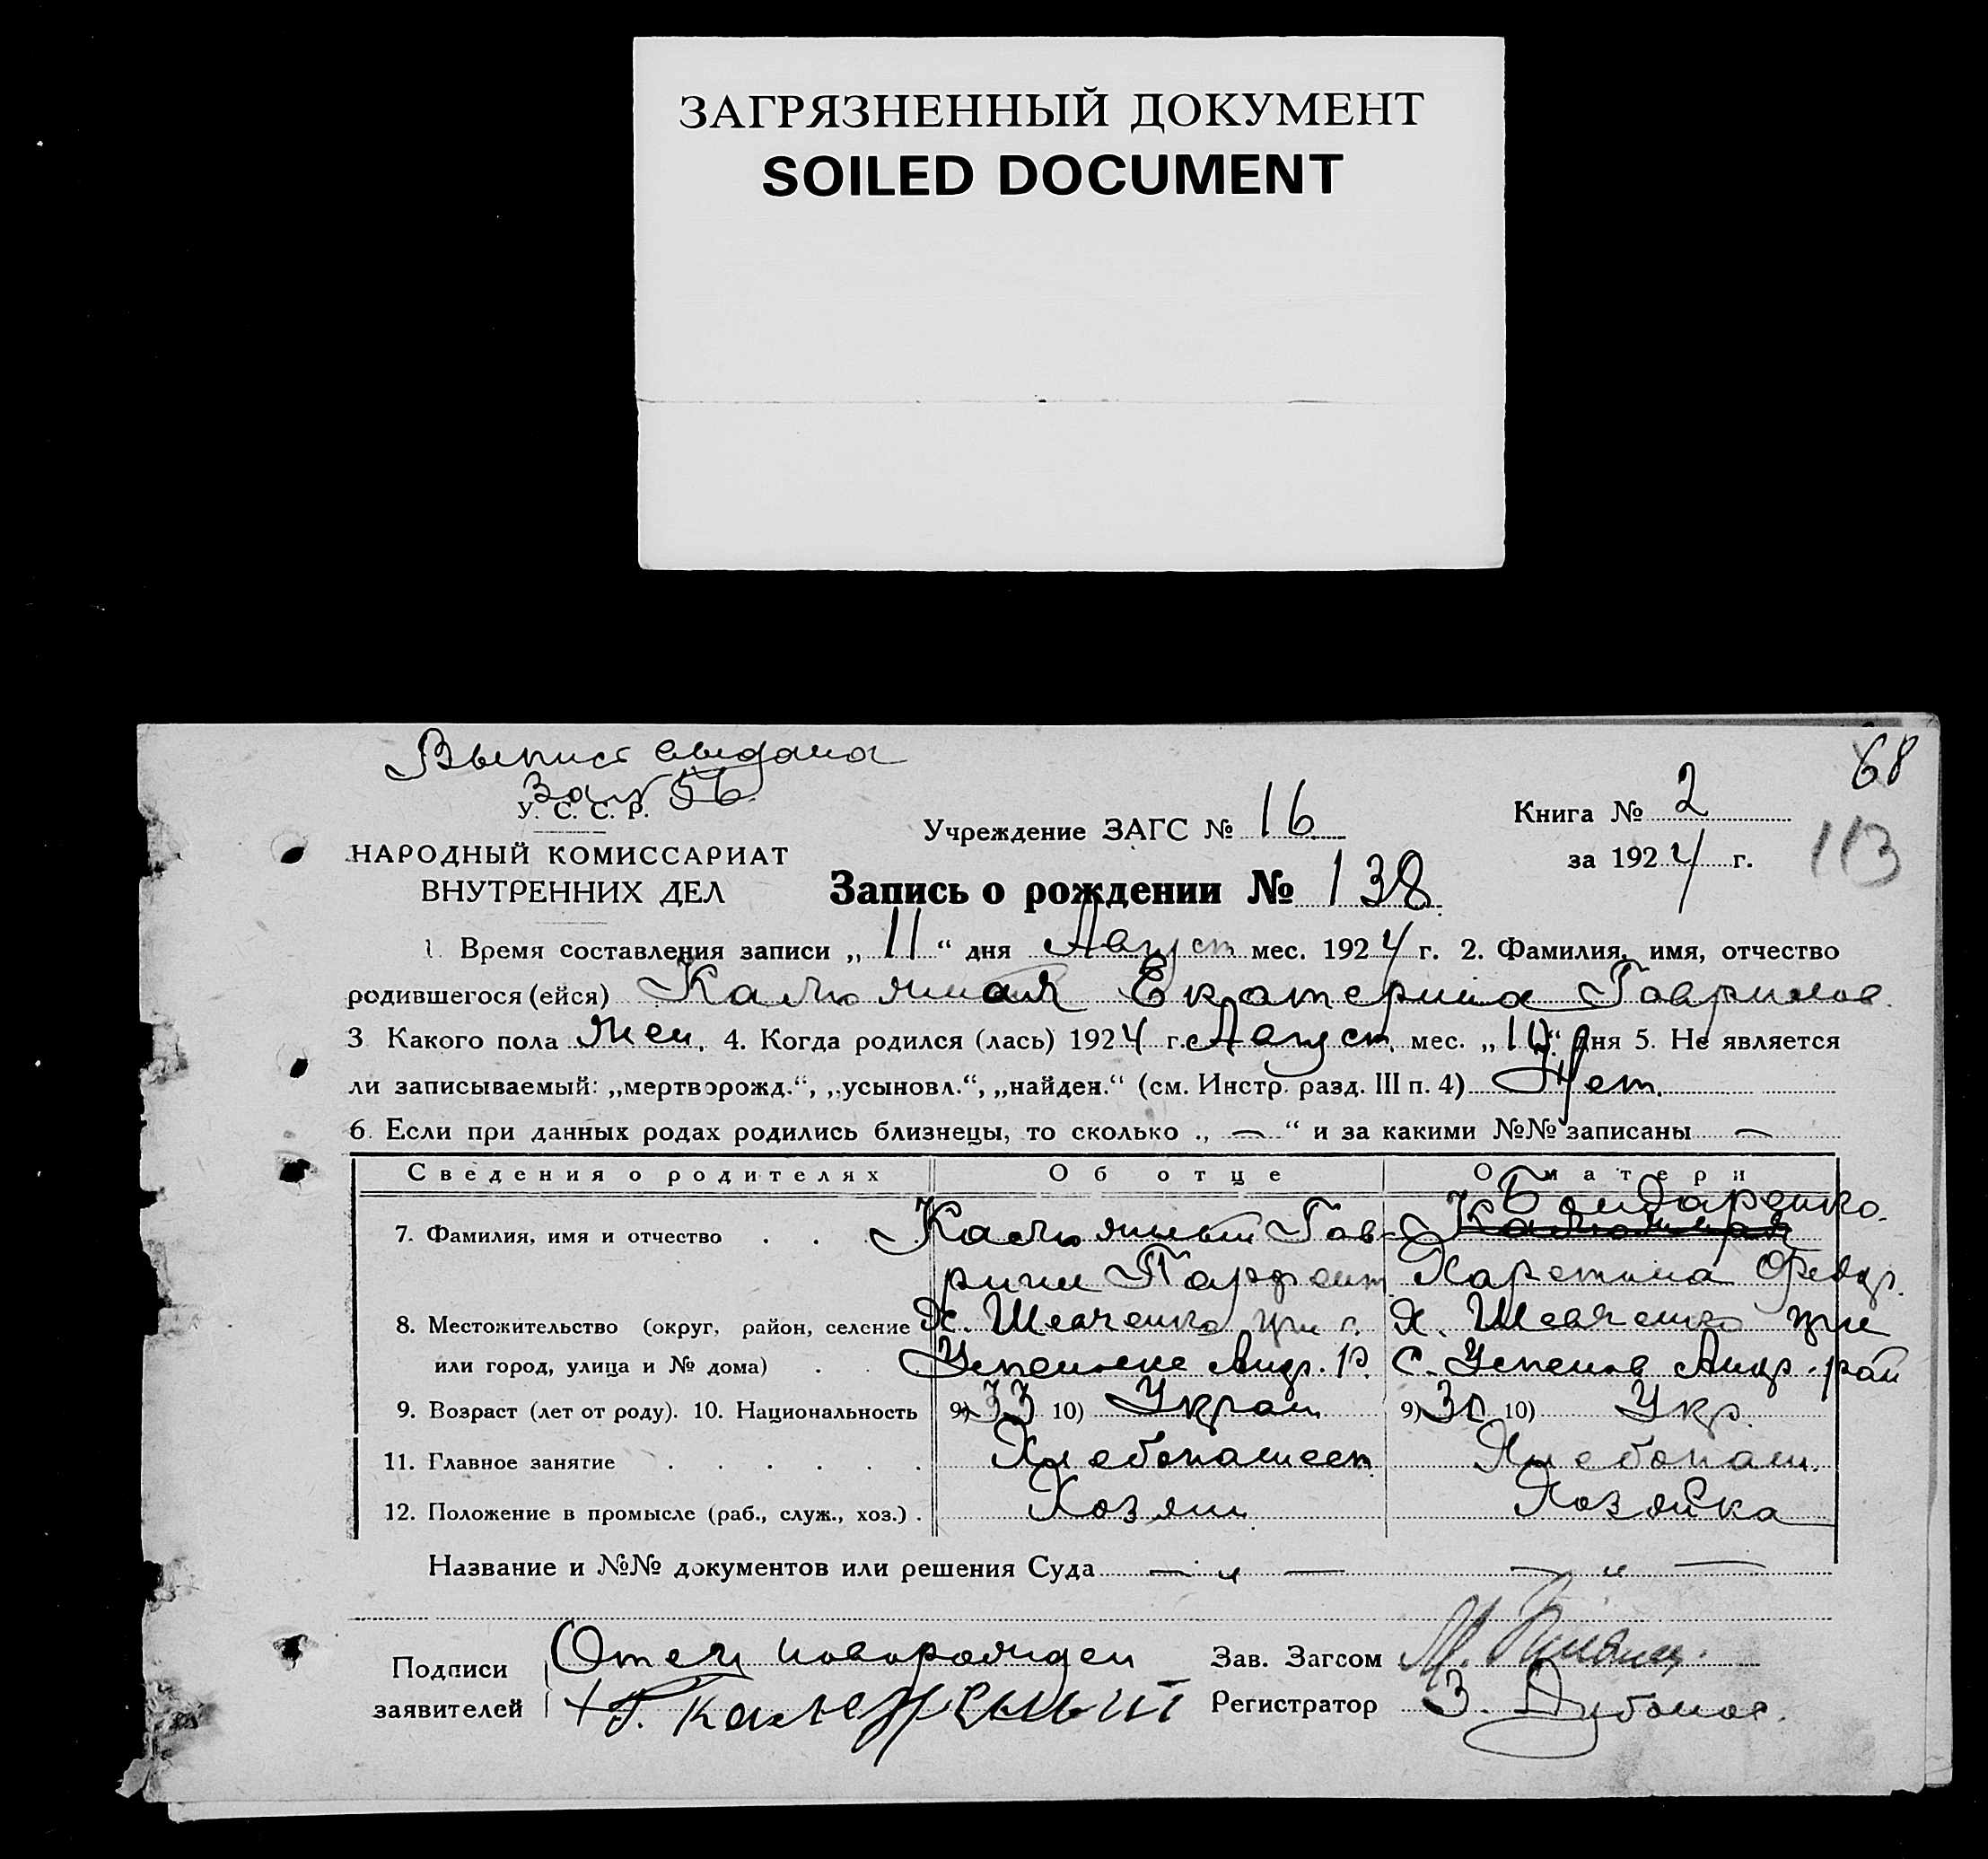 ЗАГРЯЗНЕННЫЙ ДОКУМЕНТ
SOILED DOCUMENT
Выпись выдана
За № 56
68
У. С. С. Р.
Учреждение ЗАГС № 16
Книга № 2
113
НАРОДНЫЙ КОМИССАРИАТ
за 1924 г.
ВНУТРЕННИХ ДЕЛ
Запись о рождении № 138
1. Время составления записи „11“ дня Август мес. 1924 г. 2. Фамилия, имя, отчество
родившегося (ейся) Калюжная Екатерина Гаврилов.
3 Какого пола жен. 4. Когда родился (лась) 1924 г. Август. мес. „10“ дня 5. Не является
ли записываемый: „мертворожд.“, „усыновл.“, „найден.“ (см. Инстр. разд. III п. 4) Нет.
6. Если при данных родах родились близнецы, то сколько „ — “ и за какими №№ записаны —
Сведения о родителях Об отце О матери
Бондаренко.
7. Фамилия, имя и отчество . . . Калюжный Гав- Калюжная
риил Парфент Харетина Федор.
8. Местожительство (округ, район, селение Х. Шевченко при с. Х. Шевченко при
или город, улица и № дома) . . Успеновке Андр. р. с. Успенов Андр. рай
9. Возраст (лет от роду). 10. Национальность 9) 33 10) Украин 9) 30 10) Укр.
11. Главное занятие . . . . . . Хлебопашест. Хлебопаш.
12. Положение в промысле (раб., служ., хоз.) . Хозяин Хозяйка
Название и №№ документов или решения Суда — „ — — „ —
Подписи Отец новорожден Зав. Загсом М.
заявителей + Г. Калюжный Регистратор З. Дубонос.